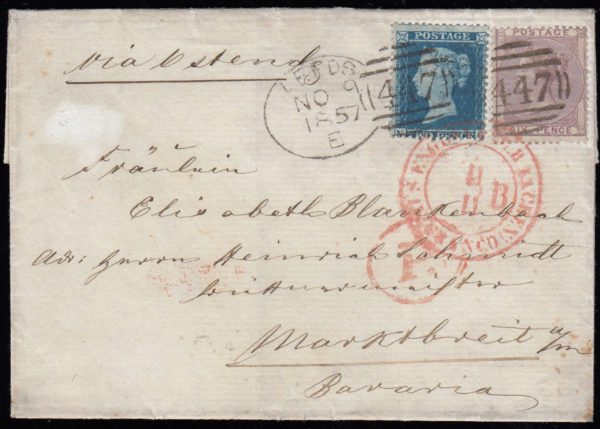 via Ostend
POSTAGE
POSTAGE
LEEDS
NO 9
1857
E
447
447
TWO PENCE
SIX PENCE
Fräulein
11
11 B
Elisabeth Blankenbach
Adr: Herrn Heinrich Schmidt
P
Marktbreit a/m
Bavaria